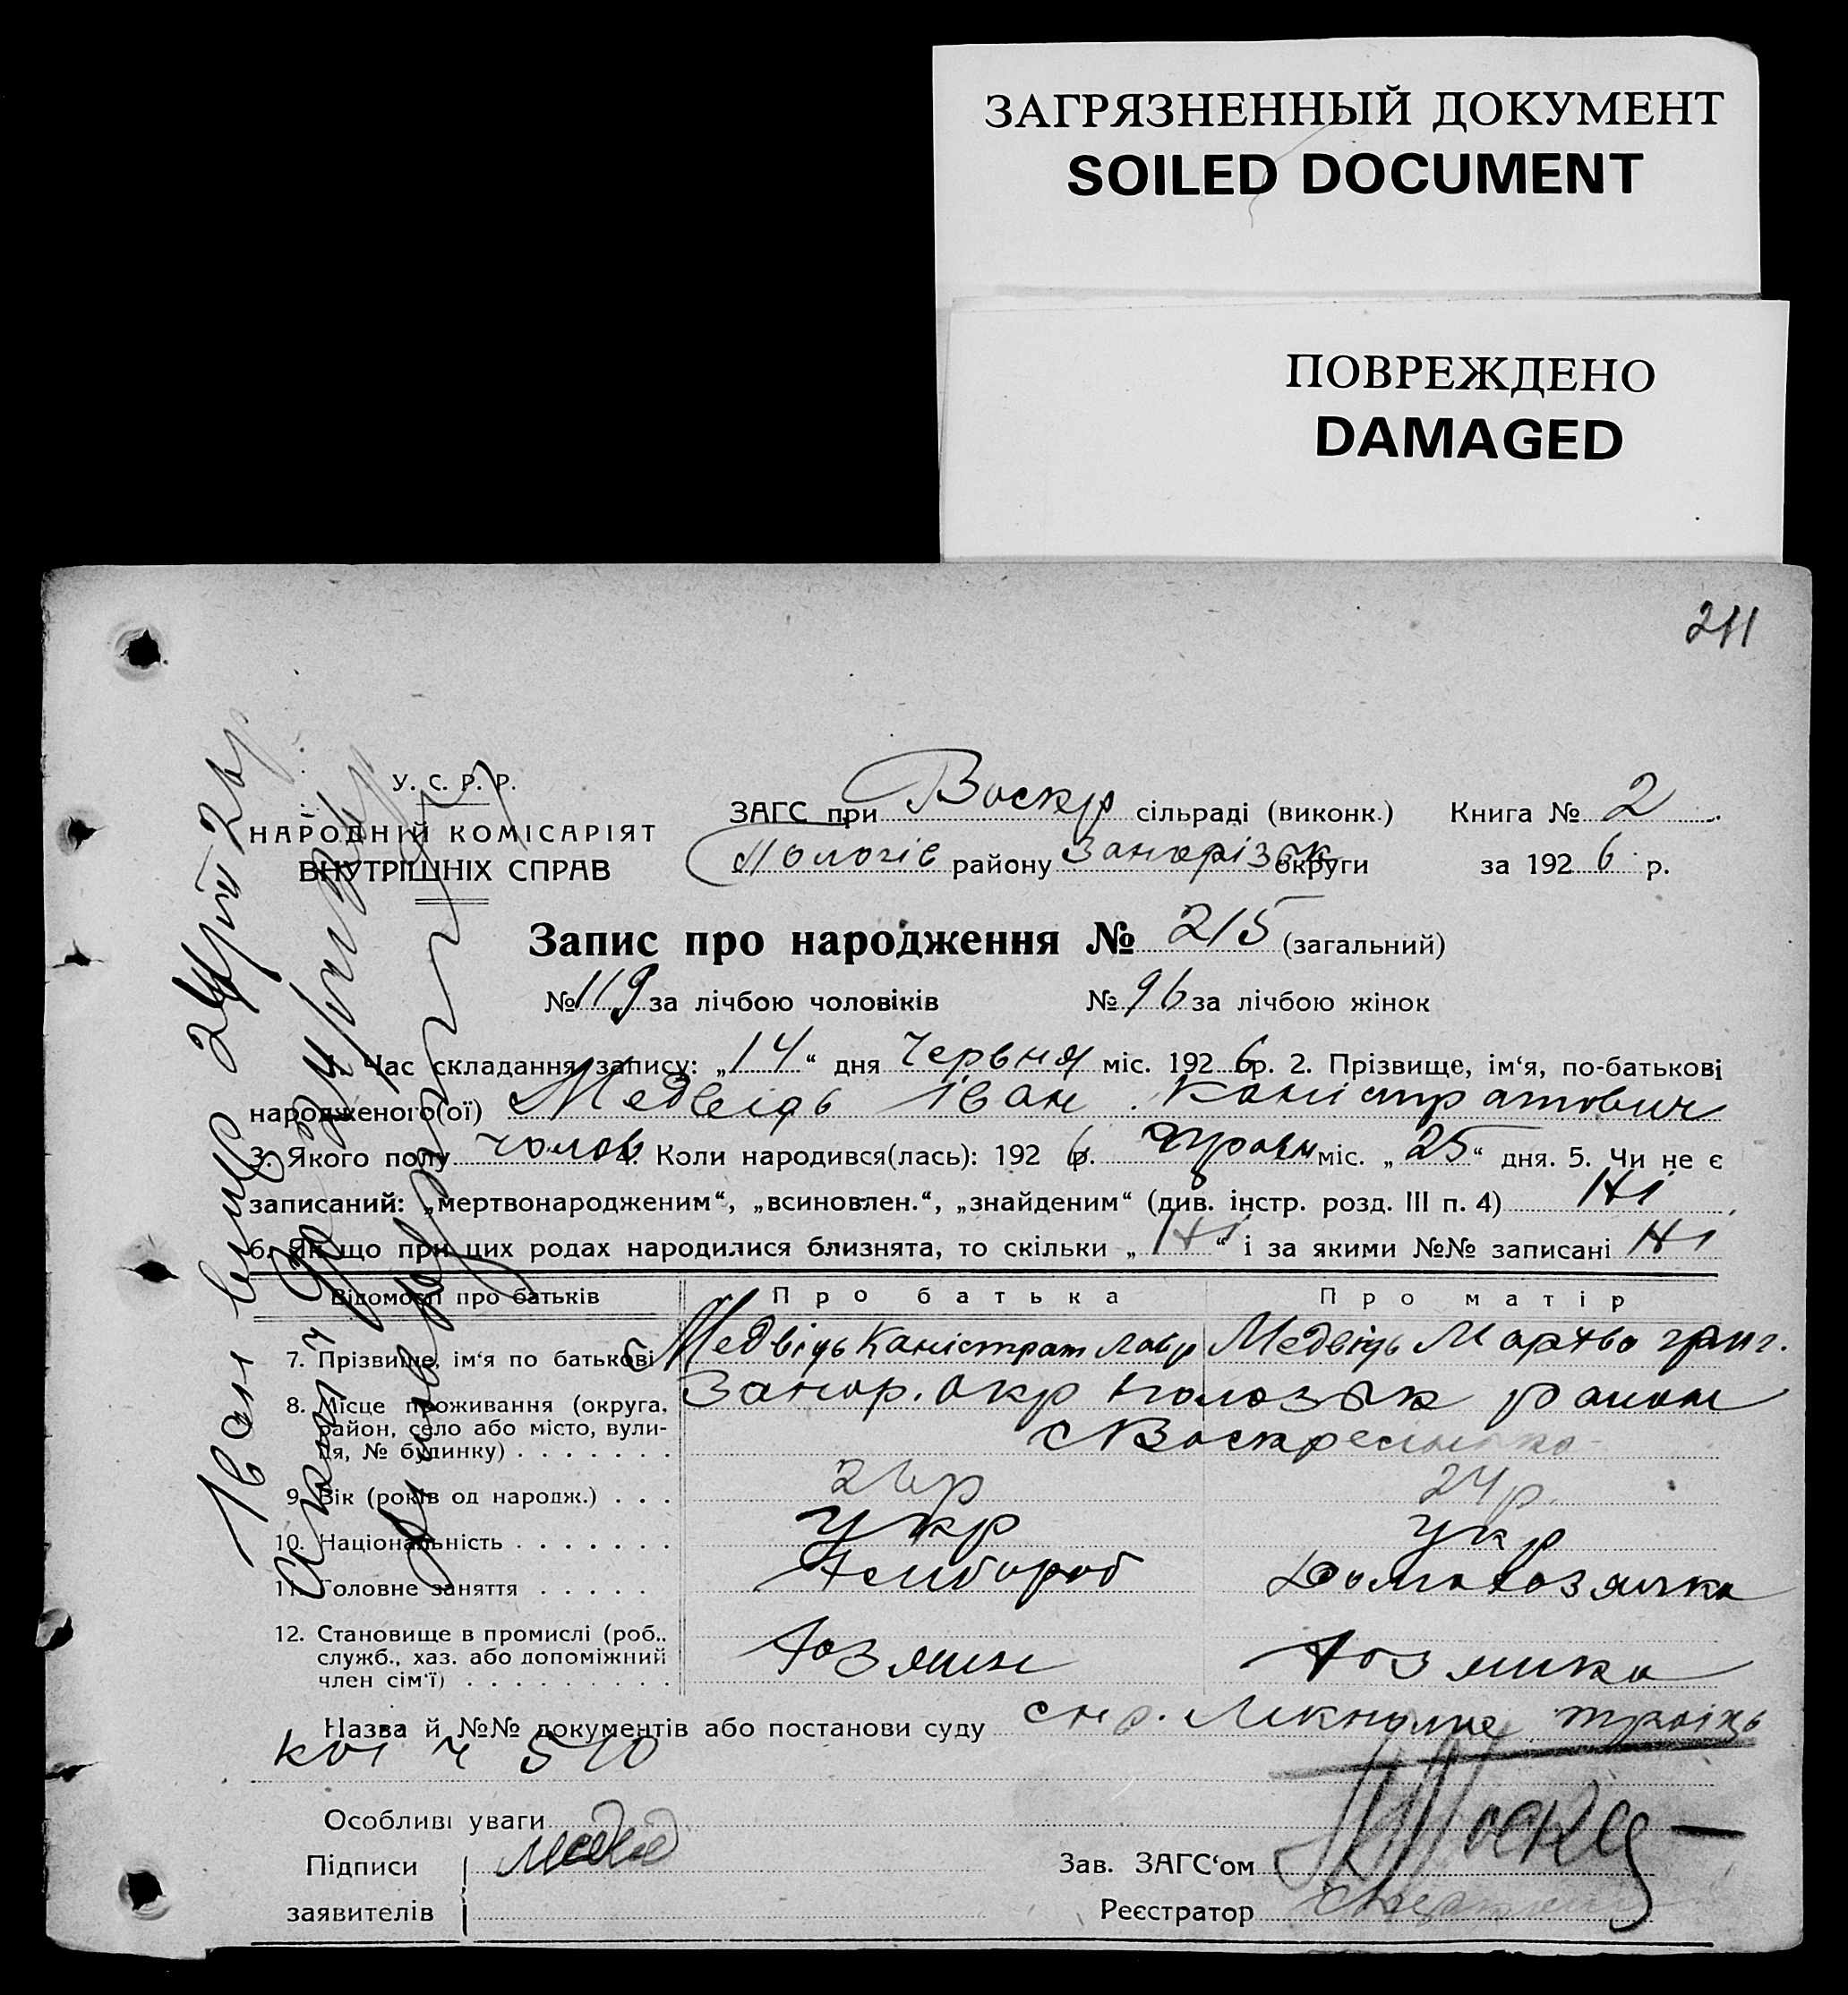 ЗАГРЯЗНЕННЫЙ ДОКУМЕНТ
SOILED DOCUMENT
ПОВРЕЖДЕНО
DAMAGED
211
У. С. Р. Р.
НАРОДНІЙ КОМІСАРІЯТ
ВНУТРІШНІХ СПРАВ
ЗАГС при Воскр сільраді (виконк.) Книга № 2
Пологів району Запоріз округи за 1926 р.
Запис про народження № 215 (загальний)
№ 119 за лічбою чоловіків № 96 за лічбою жінок
1. Час складання запису: „14“ дня Червня міс. 1926 р. 2. Прізвище, ім‘я, по-батькові
народженого(ої) Медвідь Іван Каністратович
3. Якого полу чолов 4. Коли народився(лась): 1926 р. міс. „25“ дня. 5. Чи не є
записаний: „мертвонародженим“, „всиновлен.“, „знайденим“ (див. інстр. розд. III п. 4) Ні
6. Як що при цих родах народилися близнята, то скільки „Ні“ і за якими №№ записані Ні
Відомості про батьків Про батька Про матір
7. Прізвище, ім‘я по батькові Медвідь Каністрат Лавр Медвідь Мархва григ.
8. Місце проживання (округа, район, село або місто, вулиця, № будинку) . . . . . . . Запор. окр район
с Воскресенка
9. Вік (років од народж.) . . . 26р 24р.
10. Національність . . . . . . . Укр Укр
11. Головне заняття . . . . . Хлібороб Домохозяйка
12. Становище в промислі (роб., служб., хаз. або допоміжний член сім‘ї) . . . . . . . . . Хозяин Хозяйка
Назва й №№ документів або постанови суду
510
Особливі уваги
Підписи Медвід Зав. ЗАГС‘ом
заявителів Реєстратор
Іван